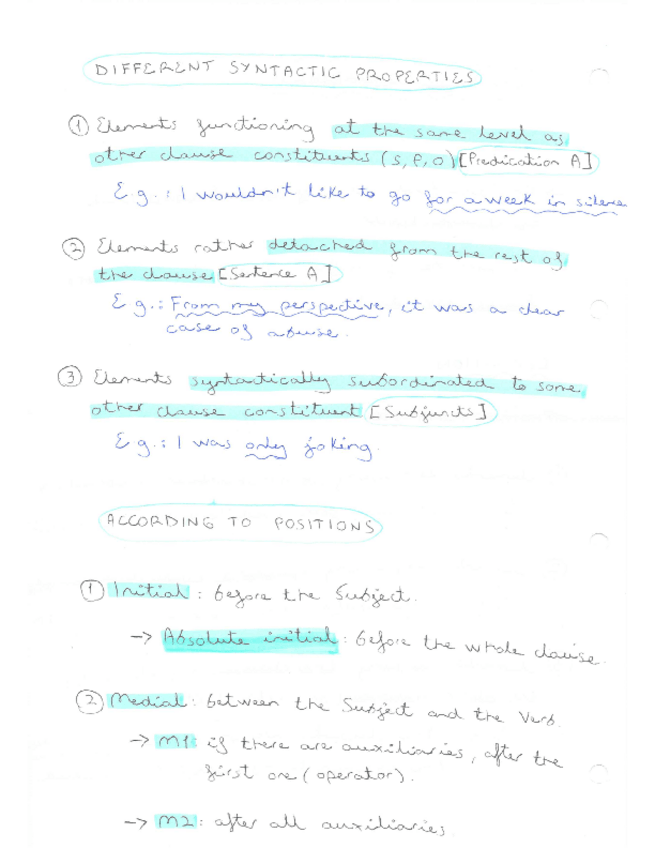 DIFFERENT SYNTACTIC PROPERTIES
① Elements functioning at the same level as
other clause constituents (S, P, O) [Predication A]
E.g.: I wouldn't like to go for a week in silence
② Elements rather detached from the rest of
the clause [Sentence A]
E g.: From my perspective, it was a clear
case of abuse.
③ Elements syntactically subordinated to some
other clause constituent [Subjuncts]
E g.: I was only joking.
ACCORDING TO POSITIONS
① Initial: before the Subject.
-> Absolute initial: before the whole clause.
② Medial: between the Subject and the Verb.
-> M1: if there are auxiliaries, after the
first one (operator).
-> M2: after all auxiliaries.